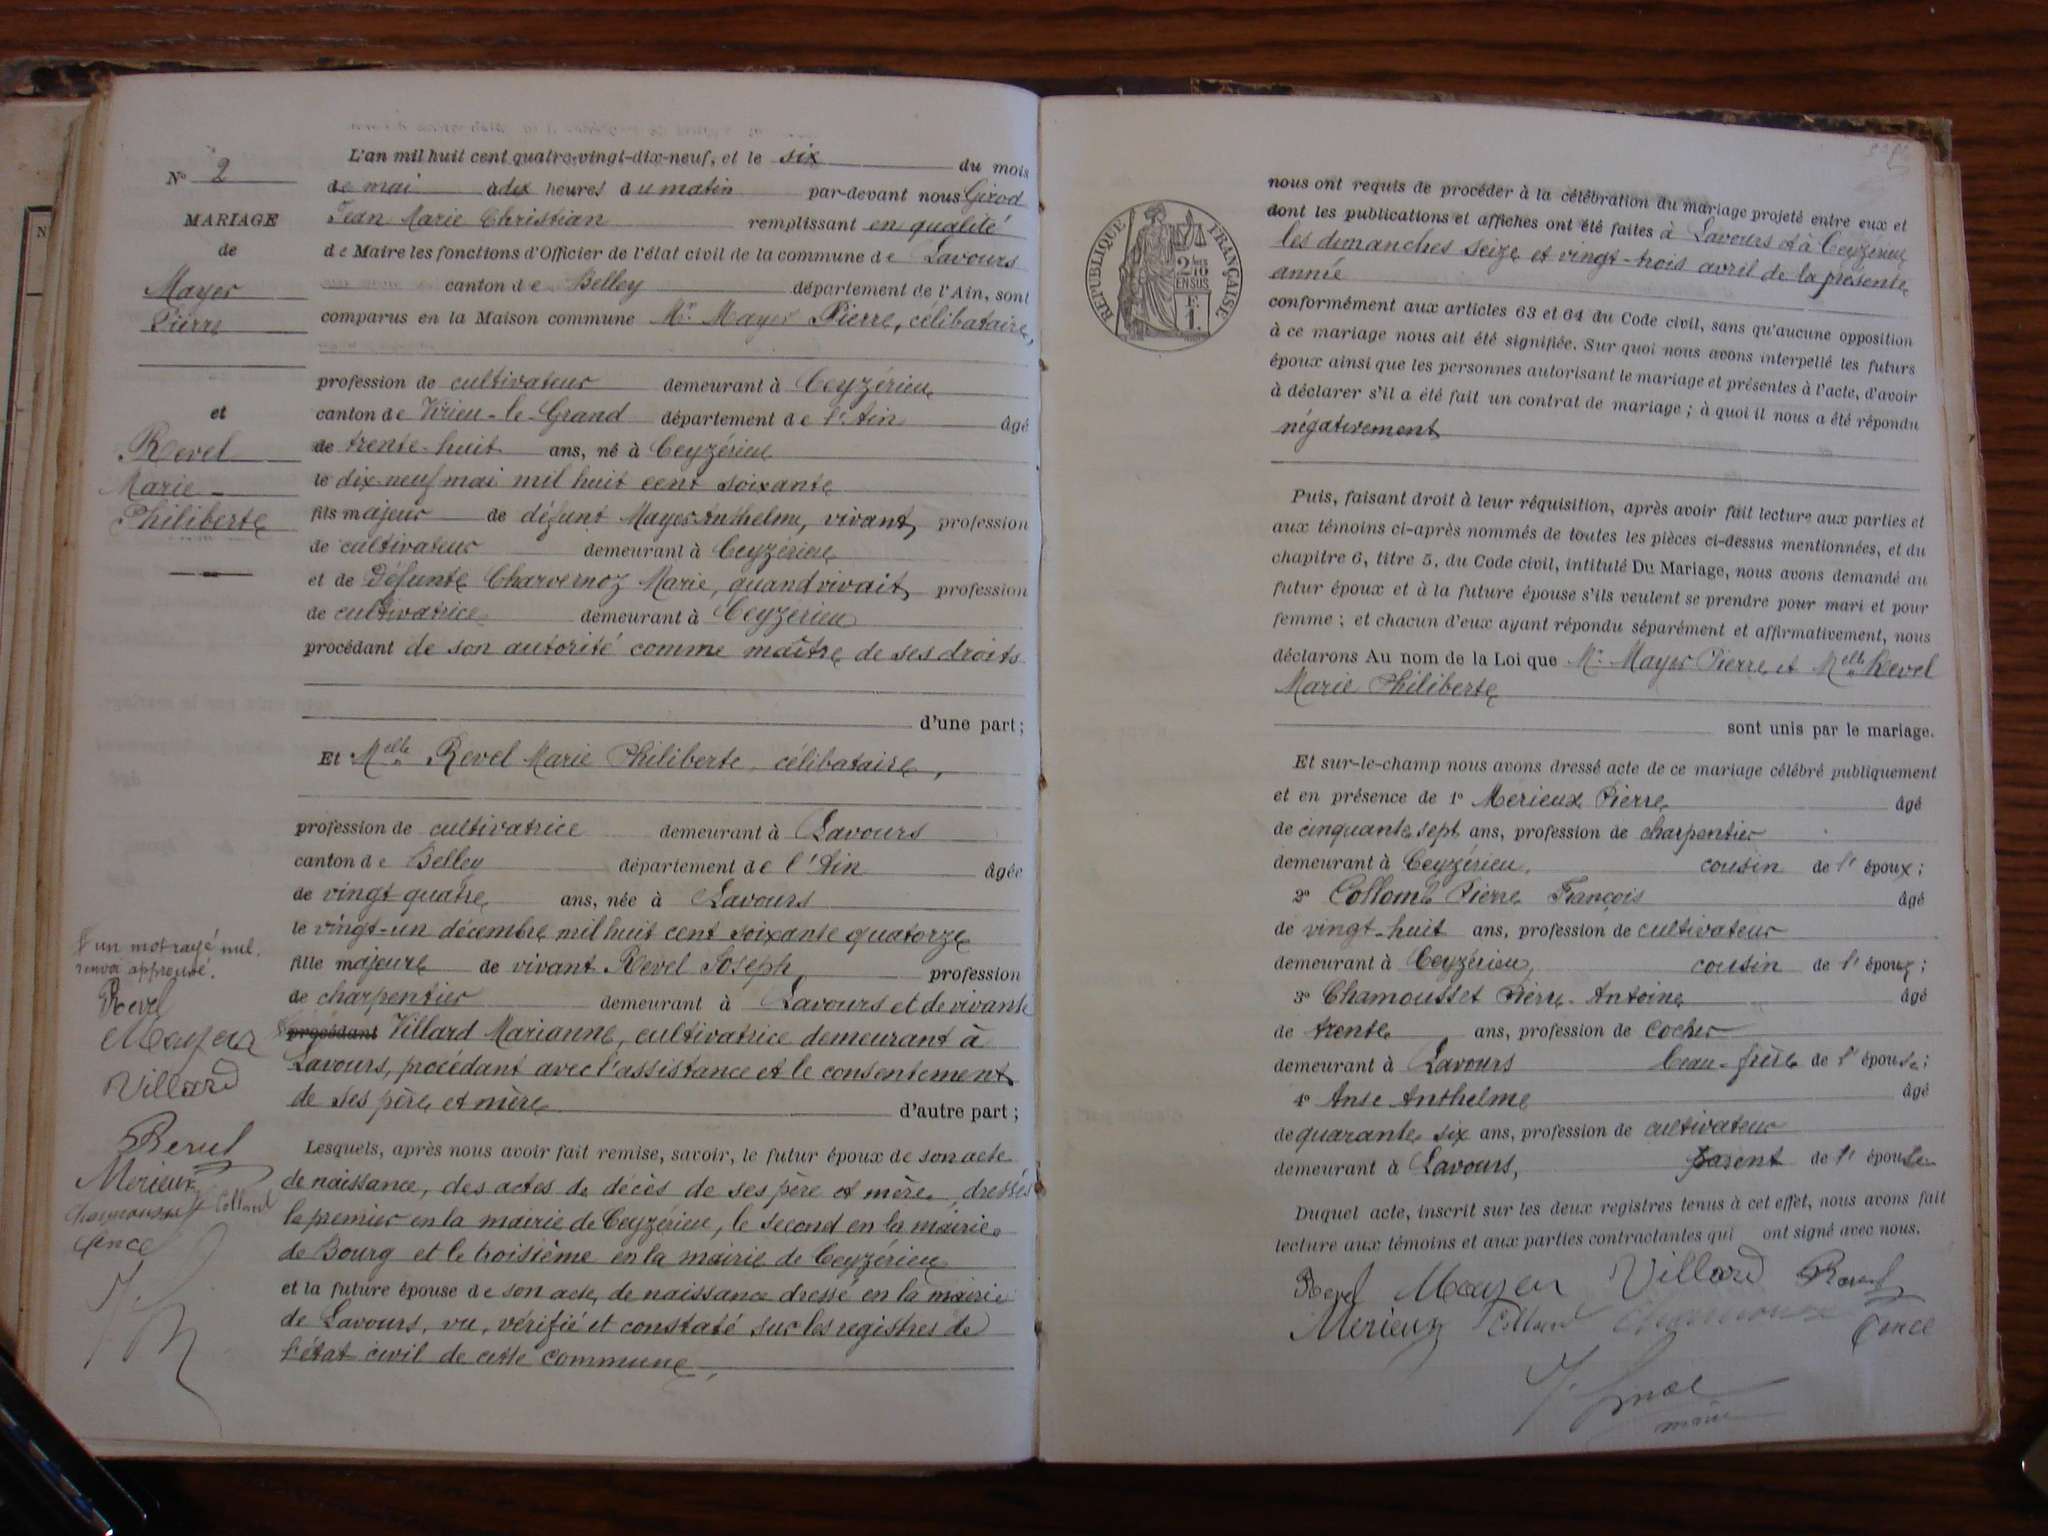 N° 2
MARIAGE
de
Mayer
Pierre
et
Revel
Marie
Philiberte
L'an mil huit cent quatre-vingt-dix-neuf, et le six du mois
de mai à dix heures du matin par-devant nous Girod
Jean Marie Christian remplissant en qualité
de Maire les fonctions d'Officier de l'état civil de la commune de Lavours
canton de Belley département de l'Ain, sont
comparus en la Maison commune Mr Mayer Pierre, célibataire,
profession de cultivateur demeurant à Ceyzérieu
canton de Virieu-le-Grand département de l'Ain âgé
de trente-huit ans, né à Ceyzérieu
le dix-neuf mai mil huit cent soixante
fils majeur de défunt Mayer Anthelme, vivant, profession
de cultivateur demeurant à Ceyzérieu
et de Défunte Charvernoz Marie, quand vivait, profession
de cultivatrice demeurant à Ceyzérieu
procédant de son autorité comme maître de ses droits
d'une part ;
Et Melle Revel Marie Philiberte célibataire,
profession de cultivatrice demeurant à Lavours
canton de Belley département de l'Ain âgée
de vingt quatre ans, née à Lavours
le vingt-un décembre mil huit cent soixante quatorze
fille majeure de vivant Revel Joseph, profession
de charpentier demeurant à Lavours et de vivante
procédant Villard Marianne, cultivatrice demeurant à
Lavours, procédant avec l'assistance et le consentement
de ses père et mère d'autre part ;
Lesquels, après nous avoir fait remise, savoir, le futur époux de son acte
de naissance, des actes de décès de ses père et mère, dressés
le premier en la mairie de Ceyzérieu, le second en la mairie
de Bourg et le troisième en la mairie de Ceyzérieu
et la future épouse de son acte de naissance dressé en la mairie
de Lavours, vu, vérifié et constaté sur les registres de
l'état civil de cette commune,
un mot rayé nul.
renvoi approuvé.
Revel
Mayer
Villard
Revel
Merieux
Chamousset Collomb
Ance
RÉPUBLIQUE FRANÇAISE
2/10 EN SUS
nous ont requis de procéder à la célébration du mariage projeté entre eux et
dont les publications et affiches ont été faites à Lavours et à Ceyzérieu
les dimanches seize et vingt-trois avril de la présente
année
conformément aux articles 63 et 64 du Code civil, sans qu'aucune opposition
à ce mariage nous ait été signifiée. Sur quoi nous avons interpellé les futurs
époux ainsi que les personnes autorisant le mariage et présentes à l'acte, d'avoir
à déclarer s'il a été fait un contrat de mariage ; à quoi il nous a été répondu
négativement
Puis, faisant droit à leur réquisition, après avoir fait lecture aux parties et
aux témoins ci-après nommés de toutes les pièces ci-dessus mentionnées, et du
chapitre 6, titre 5, du Code civil, intitulé Du Mariage, nous avons demandé au
futur époux et à la future épouse s'ils veulent se prendre pour mari et pour
femme ; et chacun d'eux ayant répondu séparément et affirmativement, nous
déclarons Au nom de la Loi que Mr Mayer Pierre et Melle Revel
Marie Philiberte
sont unis par le mariage.
Et sur-le-champ nous avons dressé acte de ce mariage célébré publiquement
et en présence de 1° Merieux Pierre âgé
de cinquante sept ans, profession de charpentier
demeurant à Ceyzérieu, cousin de l'époux ;
2° Collomb Pierre François âgé
de vingt-huit ans, profession de cultivateur
demeurant à Ceyzérieu, cousin de l'époux ;
3° Chamousset Pierre-Antoine âgé
de trente ans, profession de cocher
demeurant à Lavours beau-frère de l'épouse ;
4° Anse Anthelme âgé
de quarante six ans, profession de cultivateur
demeurant à Lavours, parent de l'épouse
Duquel acte, inscrit sur les deux registres tenus à cet effet, nous avons fait
lecture aux témoins et aux parties contractantes qui ont signé avec nous.
Revel Mayer Villard Revel
Merieux Collomb Chamousset Ance
maire